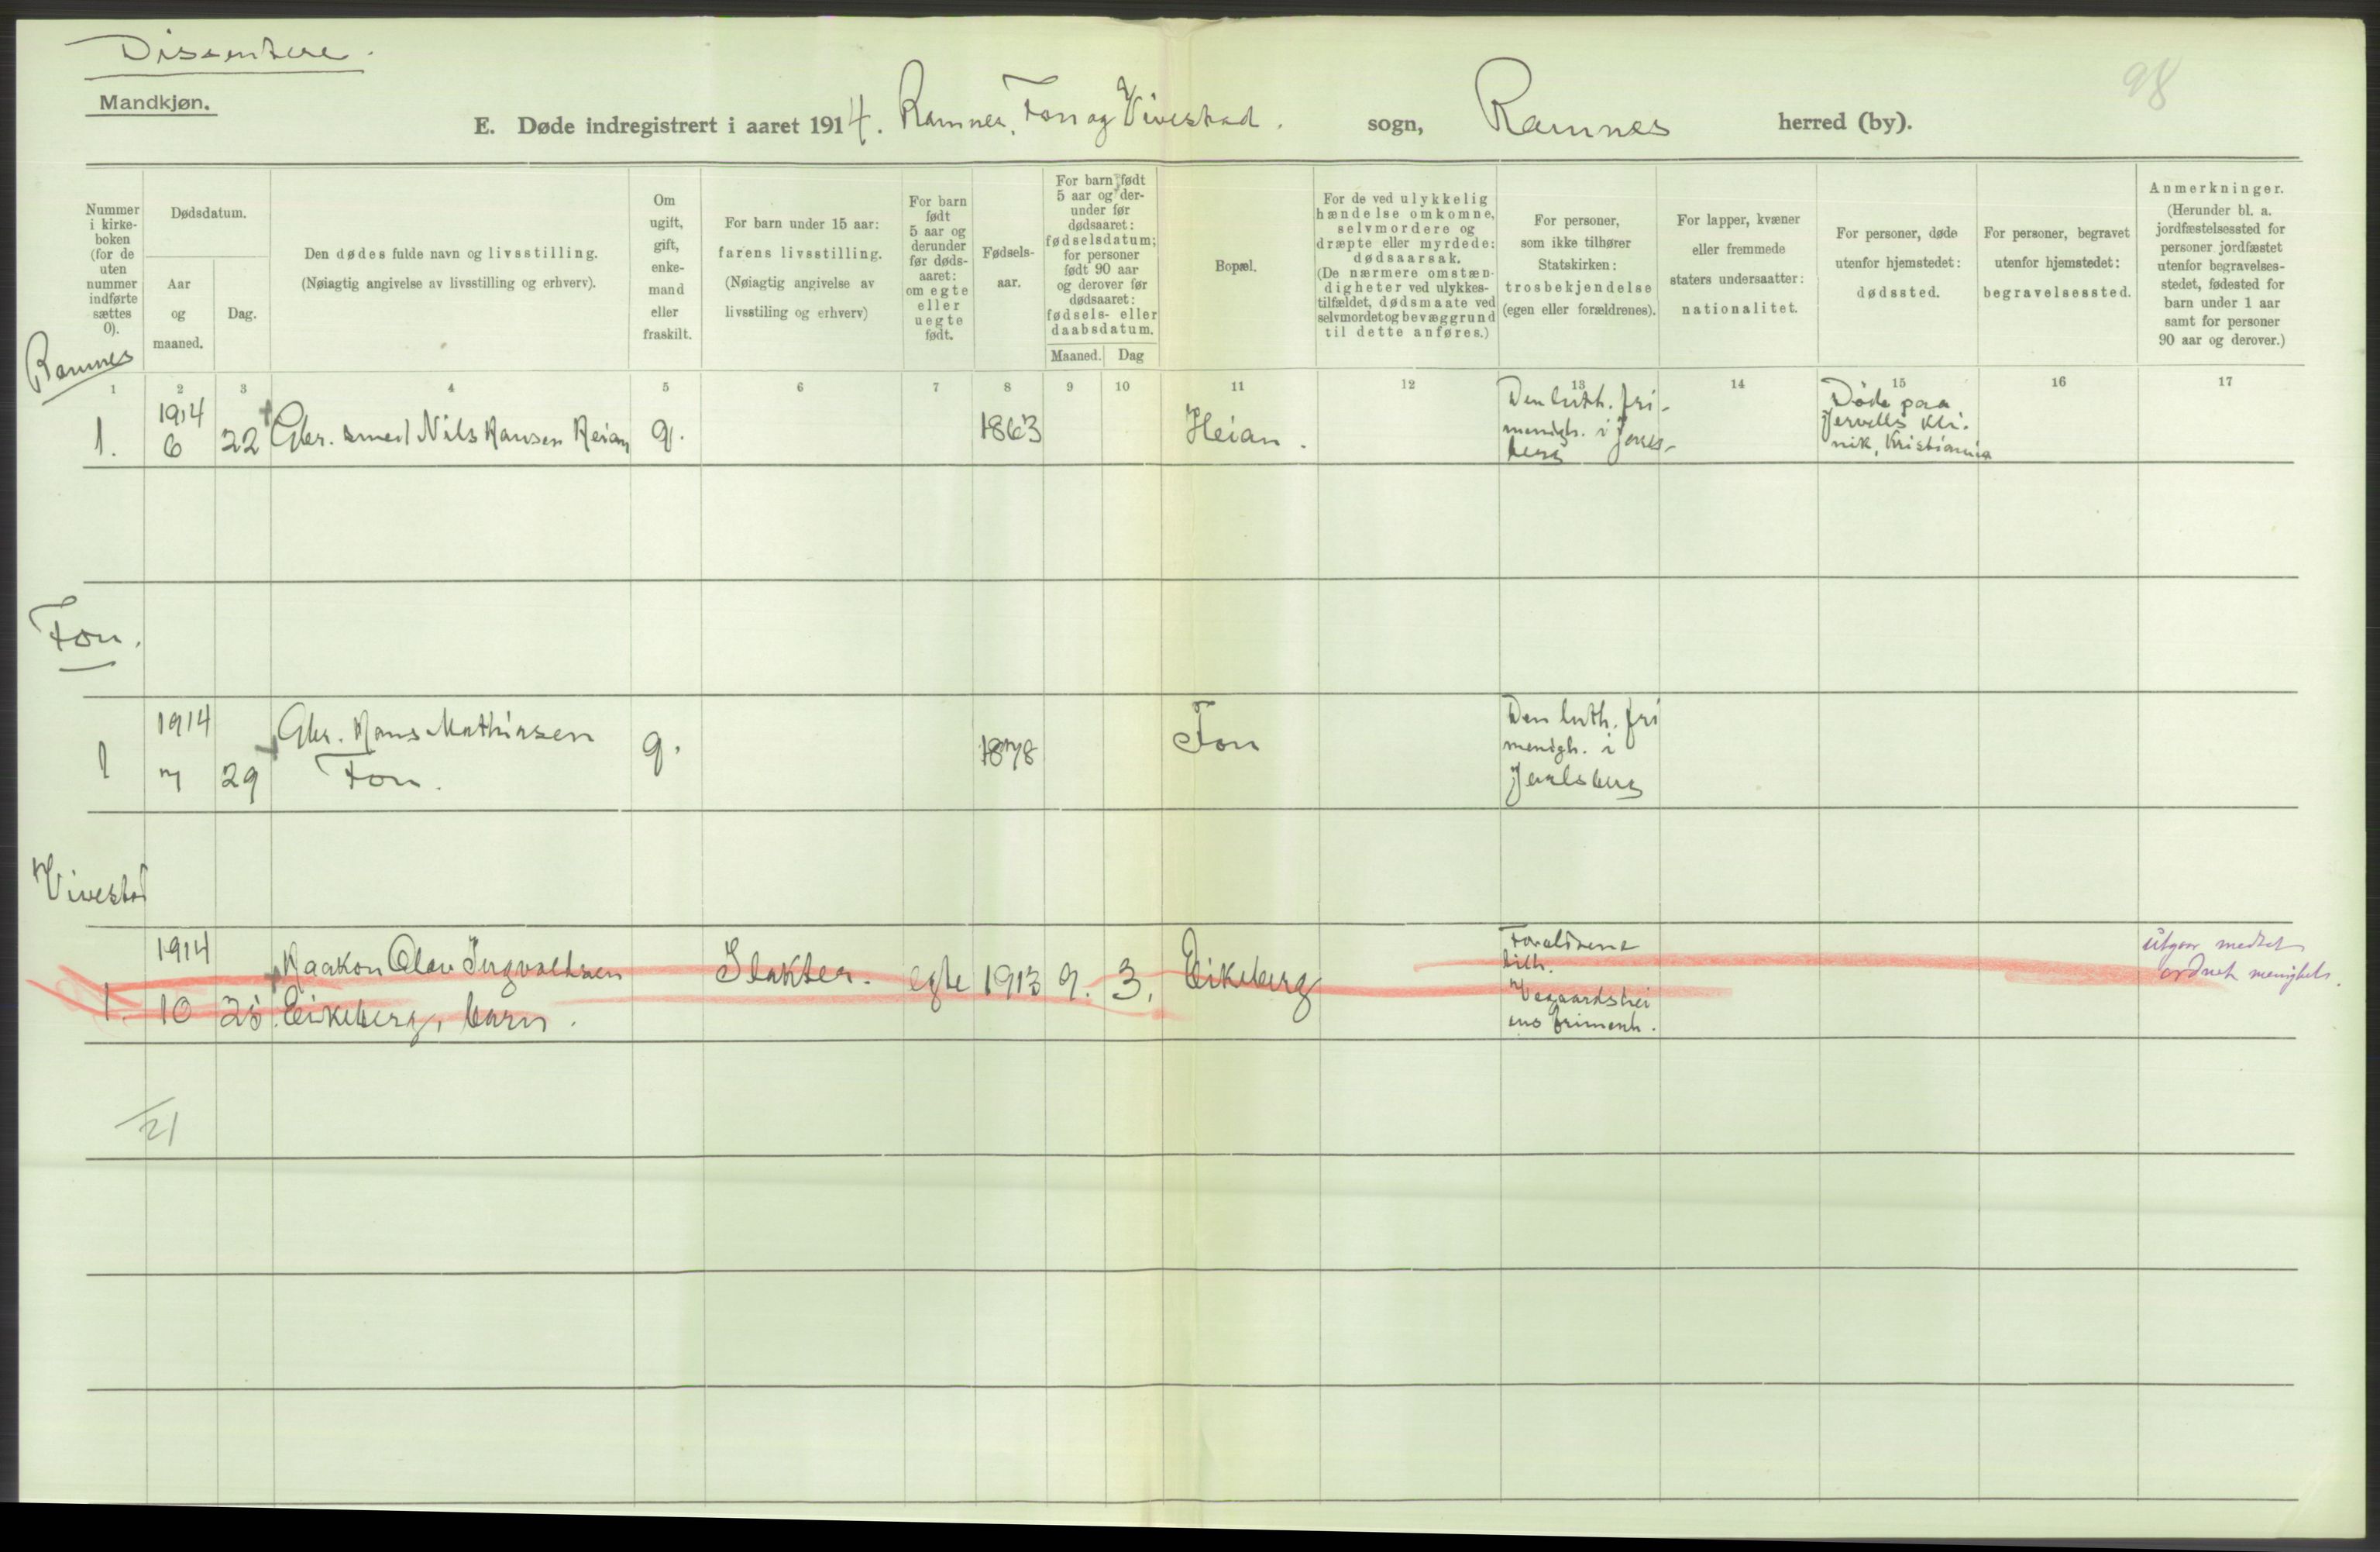 Dissentere.
98
Mandkjøn.
E. Døde indregistrert i aaret 1914. Ramnes, Fon og Vivestad. sogn, Ramnes herred (by).
Nummer
i kirke-
boken
(for de
uten
nummer
indførte
sættes
0).
Dødsdatum.
Aar
og
maaned.
Dag.
Den dødes fulde navn og livsstilling.
(Nøiagtig angivelse av livsstilling og erhverv).
Om
ugift,
gift,
enke-
mand
eller
fraskilt.
For barn under 15 aar:
farens livsstilling.
(Nøiagtig angivelse av
livsstiling og erhverv)
For barn
født
5 aar og
derunder
før døds-
aaret:
om egte
eller
uegte
født.
Fødsels-
aar.
For barn født
5 aar og der-
under før
dødsaaret:
fødselsdatum;
for personer
født 90 aar
og derover før
dødsaaret:
fødsels- eller
daabsdatum.
Maaned. Dag
Bopæl.
For de ved ulykkelig
hændelse omkomne,
selvmordere og
dræpte eller myrdede:
dødsaarsak.
(De nærmere omstæn-
digheter ved ulykkes-
tilfældet, dødsmaate ved
selvmordet og bevæggrund
til dette anføres.)
For personer,
som ikke tilhører
Statskirken:
trosbekjendelse
(egen eller forældrenes).
For lapper, kvæner
eller fremmede
staters undersaatter:
nationalitet.
For personer, døde
utenfor hjemstedet:
dødssted.
For personer, begravet
utenfor hjemstedet:
begravelsessted.
Anmerkninger.
(Herunder bl. a.
jordfæstelsessted for
personer jordfæstet
utenfor begravelses-
stedet, fødested for
barn under 1 aar
samt for personer
90 aar og derover.)
Ramnes
1 2 3 4 5 6 7 8 9 10 11 12 13 14 15 16 17
1. 1914 6 22 Gbr. smed Nils Hansen Heian g. 1863 Heian.
Den luth. fri-
menigh. i Jarls-
berg
Døde paa
Jervells kli-
nik, Kristiania
Fon.
1 1914 7 29 Gbr. Hans Mathiasen
Fon.
g. 1878 Fon
Den luth. fri
menigh. i
Jarlsberg
Vivestad
1. 1914 10 25 Haakon Olav Ingvaldsen
Eikeberg, barn.
Slakter. egte 1913 9. 3. Eikeberg
Foraldrene
tilh.
Vegaardshei
ens frimenh.
Utgaar medtat
ordnet menighets.
/21